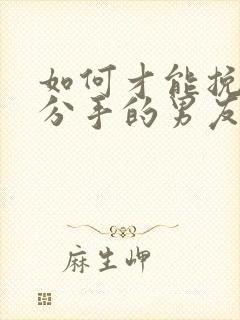 如何才能挽
分手的男友
麻生岬